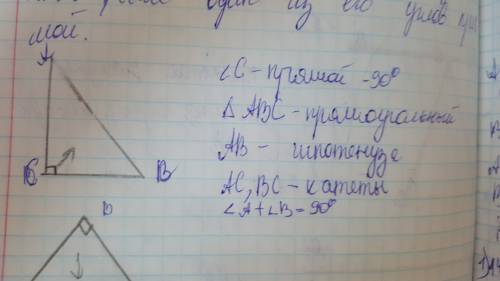 один из его углов пря
мой.
A
∠C - прямой - 90°
Δ ABC - прямоугольный
AB - гипотенуза
AC, BC - катеты
∠A+∠B=90°
C
B